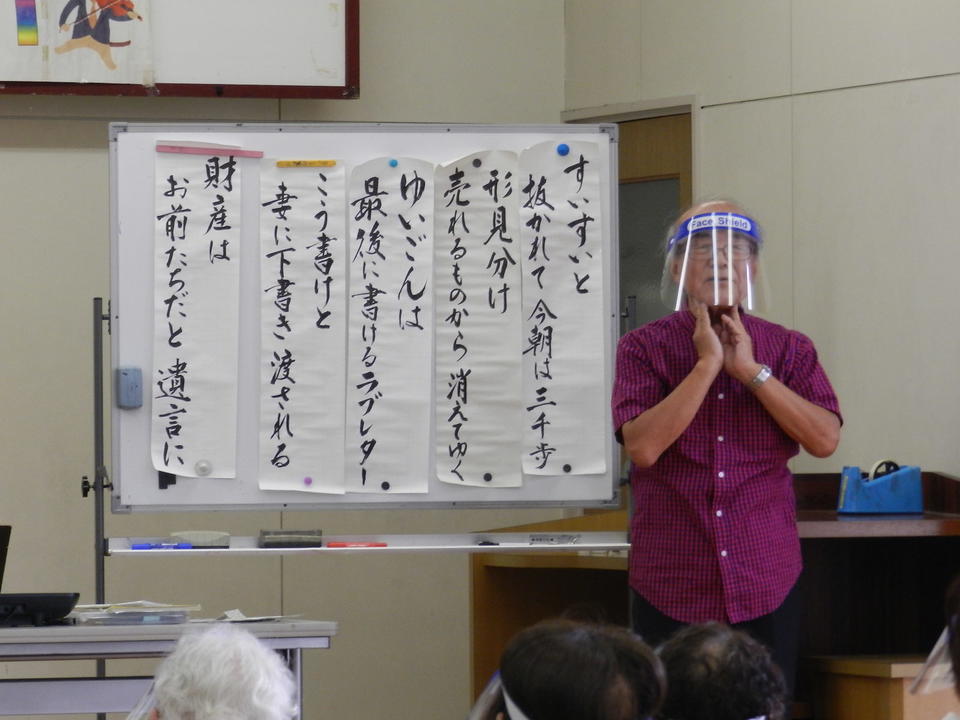 すいすいと
抜かれて今朝は三千歩
形見分け
売れるものから消えてゆく
ゆいごんは
最後に書けるラブレター
こう書けと
妻に下書き渡される
財産は
お前たちだと遺言に
Face Shield